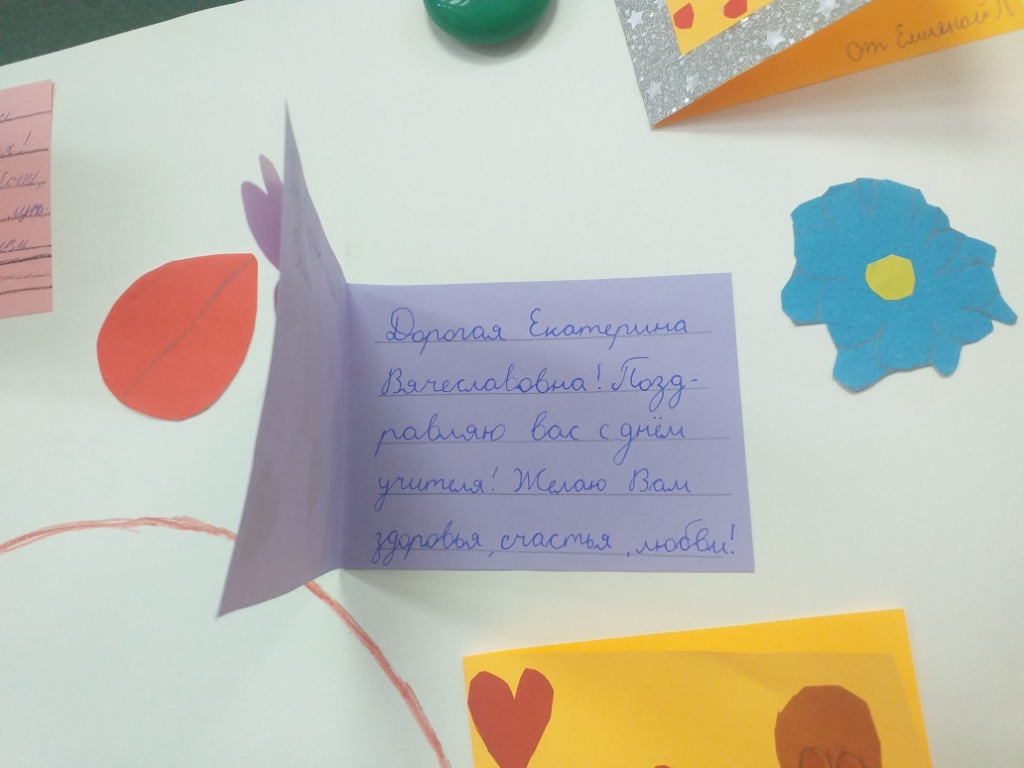 от
Дорогая Екатерина
Вячеславовна! Позд-
равляю вас с днём
учителя! Желаю Вам
здоровья, счастья, любви!